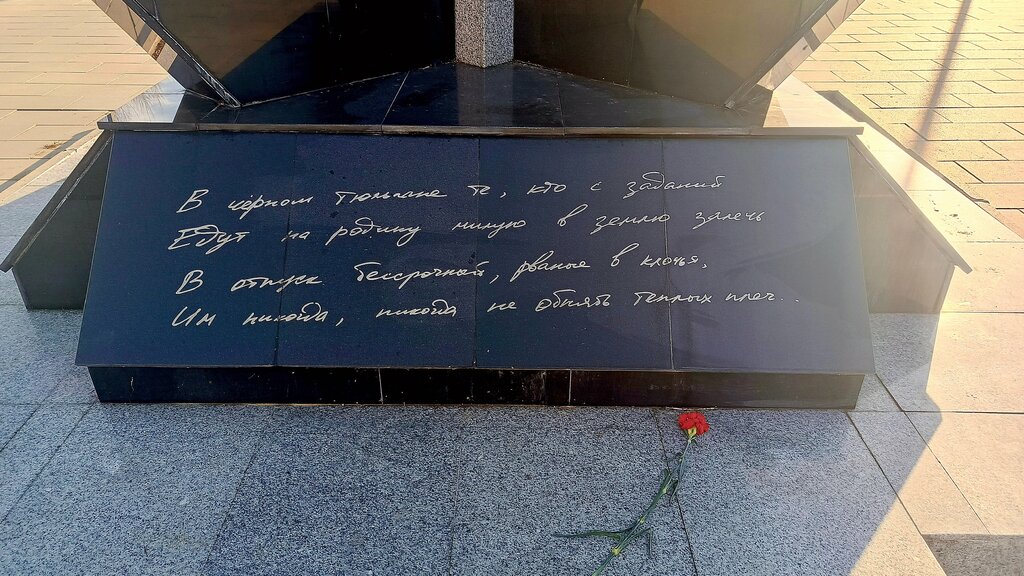 В чёрном тюльпане те, кто с заданий
Едут на родину милую в землю залечь
В отпуск бессрочный, рваные в клочья,
Им никогда, никогда не обнять теплых плеч..